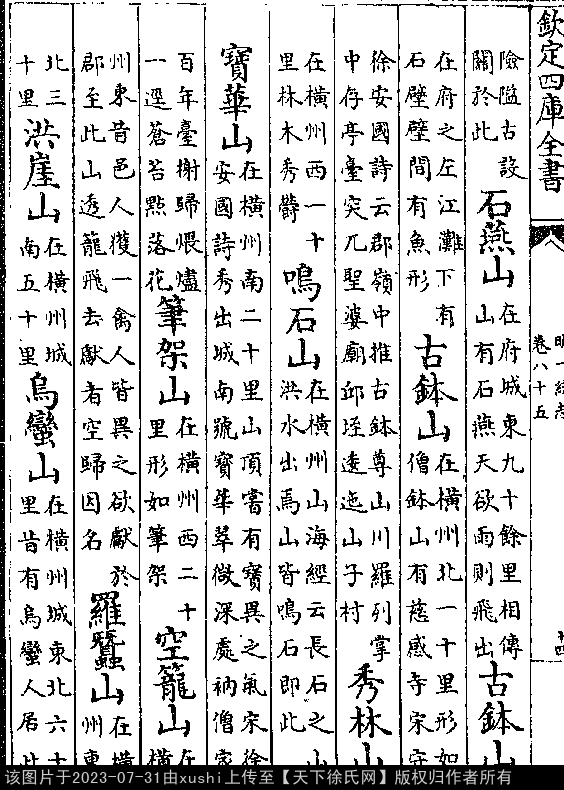 欽定四庫全書
明一統志
卷八十五
十四
險隘古設
關於此
石燕山
在府城東九十餘里相傳
山有石燕天欲雨則飛出
古鉢山
在府之左江灘下有
石壁壁間有魚形
古鉢山
在橫州北一十里形如
僧鉢山有慈感寺宋守
徐安國詩云郡嶺中推古鉢尊山川羅列掌
中存亭臺突兀聖婆廟邱垤逶迤山子村
秀林山
在橫州西一十
里林木秀欝
鳴石山
在橫州山海經云長石之山
洪水出焉山皆鳴石即此
寳華山
在橫州南二十里山頂嘗有寳異之氣宋徐
安國詩秀出城南號寳華翠微深處衲僧家
百年臺榭歸煨燼
一逕蒼苔點落花
筆架山
在橫州西二十
里形如筆架
空籠山
在橫
州東昔邑人獲一禽人皆異之欲獻於
郡至此山透籠飛去獻者空歸因名
羅蠶山
在橫
州東
北三
十里
洪崖山
在橫州城
南五十里
烏蠻山
在橫州城東北六十
里昔有烏蠻人居此
该图片于2023-07-31由xushi上传至【天下徐氏网】版权归作者所有